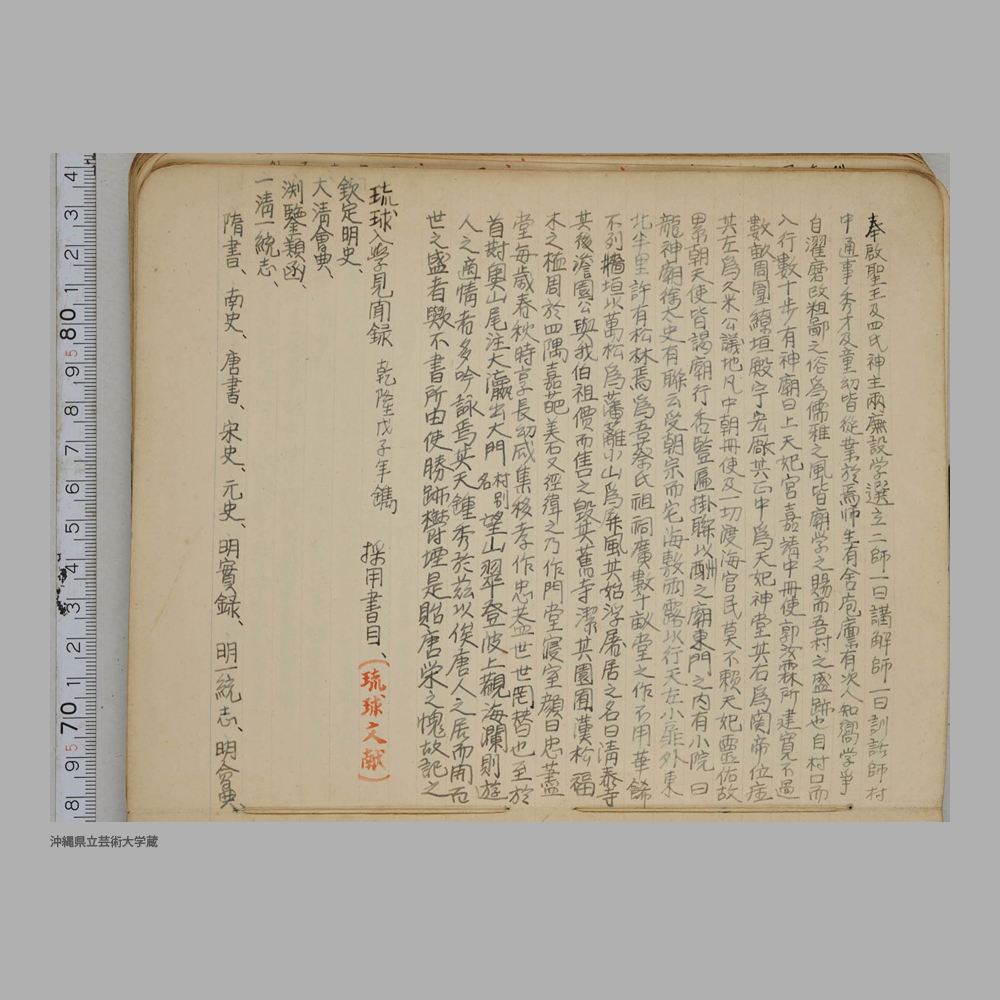 奉啟聖王及四氏神主兩廡設学選立二師一曰謹解師一曰訓詁師村
中通事秀才及童幼皆從業於焉師生有舍庖廩有次人知嚮学争
自濯磨改粗鄙之俗為儒雅之風皆廟学之賜而吾村之盛跡也自村口而
入行數十步有神廟曰上天妃宮嘉靖中冊使郭汝霖所建寬不過
數畝周圍繚垣殿宇宏厰其正中爲天妃神堂其右爲関帝位座
其左爲久米公議地凡中朝冊使及一切渡海官民莫不賴天妃靈佑故
累朝天使皆謁廟行香豎匾掛聯以酬之廟東門之内有小院曰
龍神廟徐太史有聯云受朝宗而宅海敷雨露以行天左小巫外東
北半里許有松林焉爲吾蔡氏祖祠廣數十畝堂之作不用華餙
不列墻垣以萬松爲藩籬小山爲屏風其始浮屠居之名曰清泰寺
其後澹園公與我伯祖價而售之毀其舊寺潔其園囿漢松福
木之植周於四隅嘉葩美石又徑緯之乃作門堂寝室顔曰忠藎
堂毎歳春秋時享長幼咸集移孝作忠蓋世世罔替也至於
首對奧山尾注大瀛出大門村別名望山翠登波上觀海瀾則遊
人之適情者多吟詠焉英天鍾秀於茲以俟唐人之居而開百
世之盛者歟不書所由使勝跡欝堙是貽唐栄之愧故記之
琉球入學見聞録　乾隆戊子年鐫　採用書目、（琉球文献）
欽定明史、
大清會典、
渕鑒類函、
一清一統志、
隋書、南史、唐書、宋史、元史、明實録、明一統志、明會典、
沖縄県立芸術大学蔵